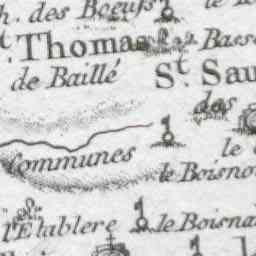 h. des Boeufs
le
t. Thomas
Basse
de Baillé
St. Sau
des
Communes
le
le Boisno
l'Etablere
le Boisna